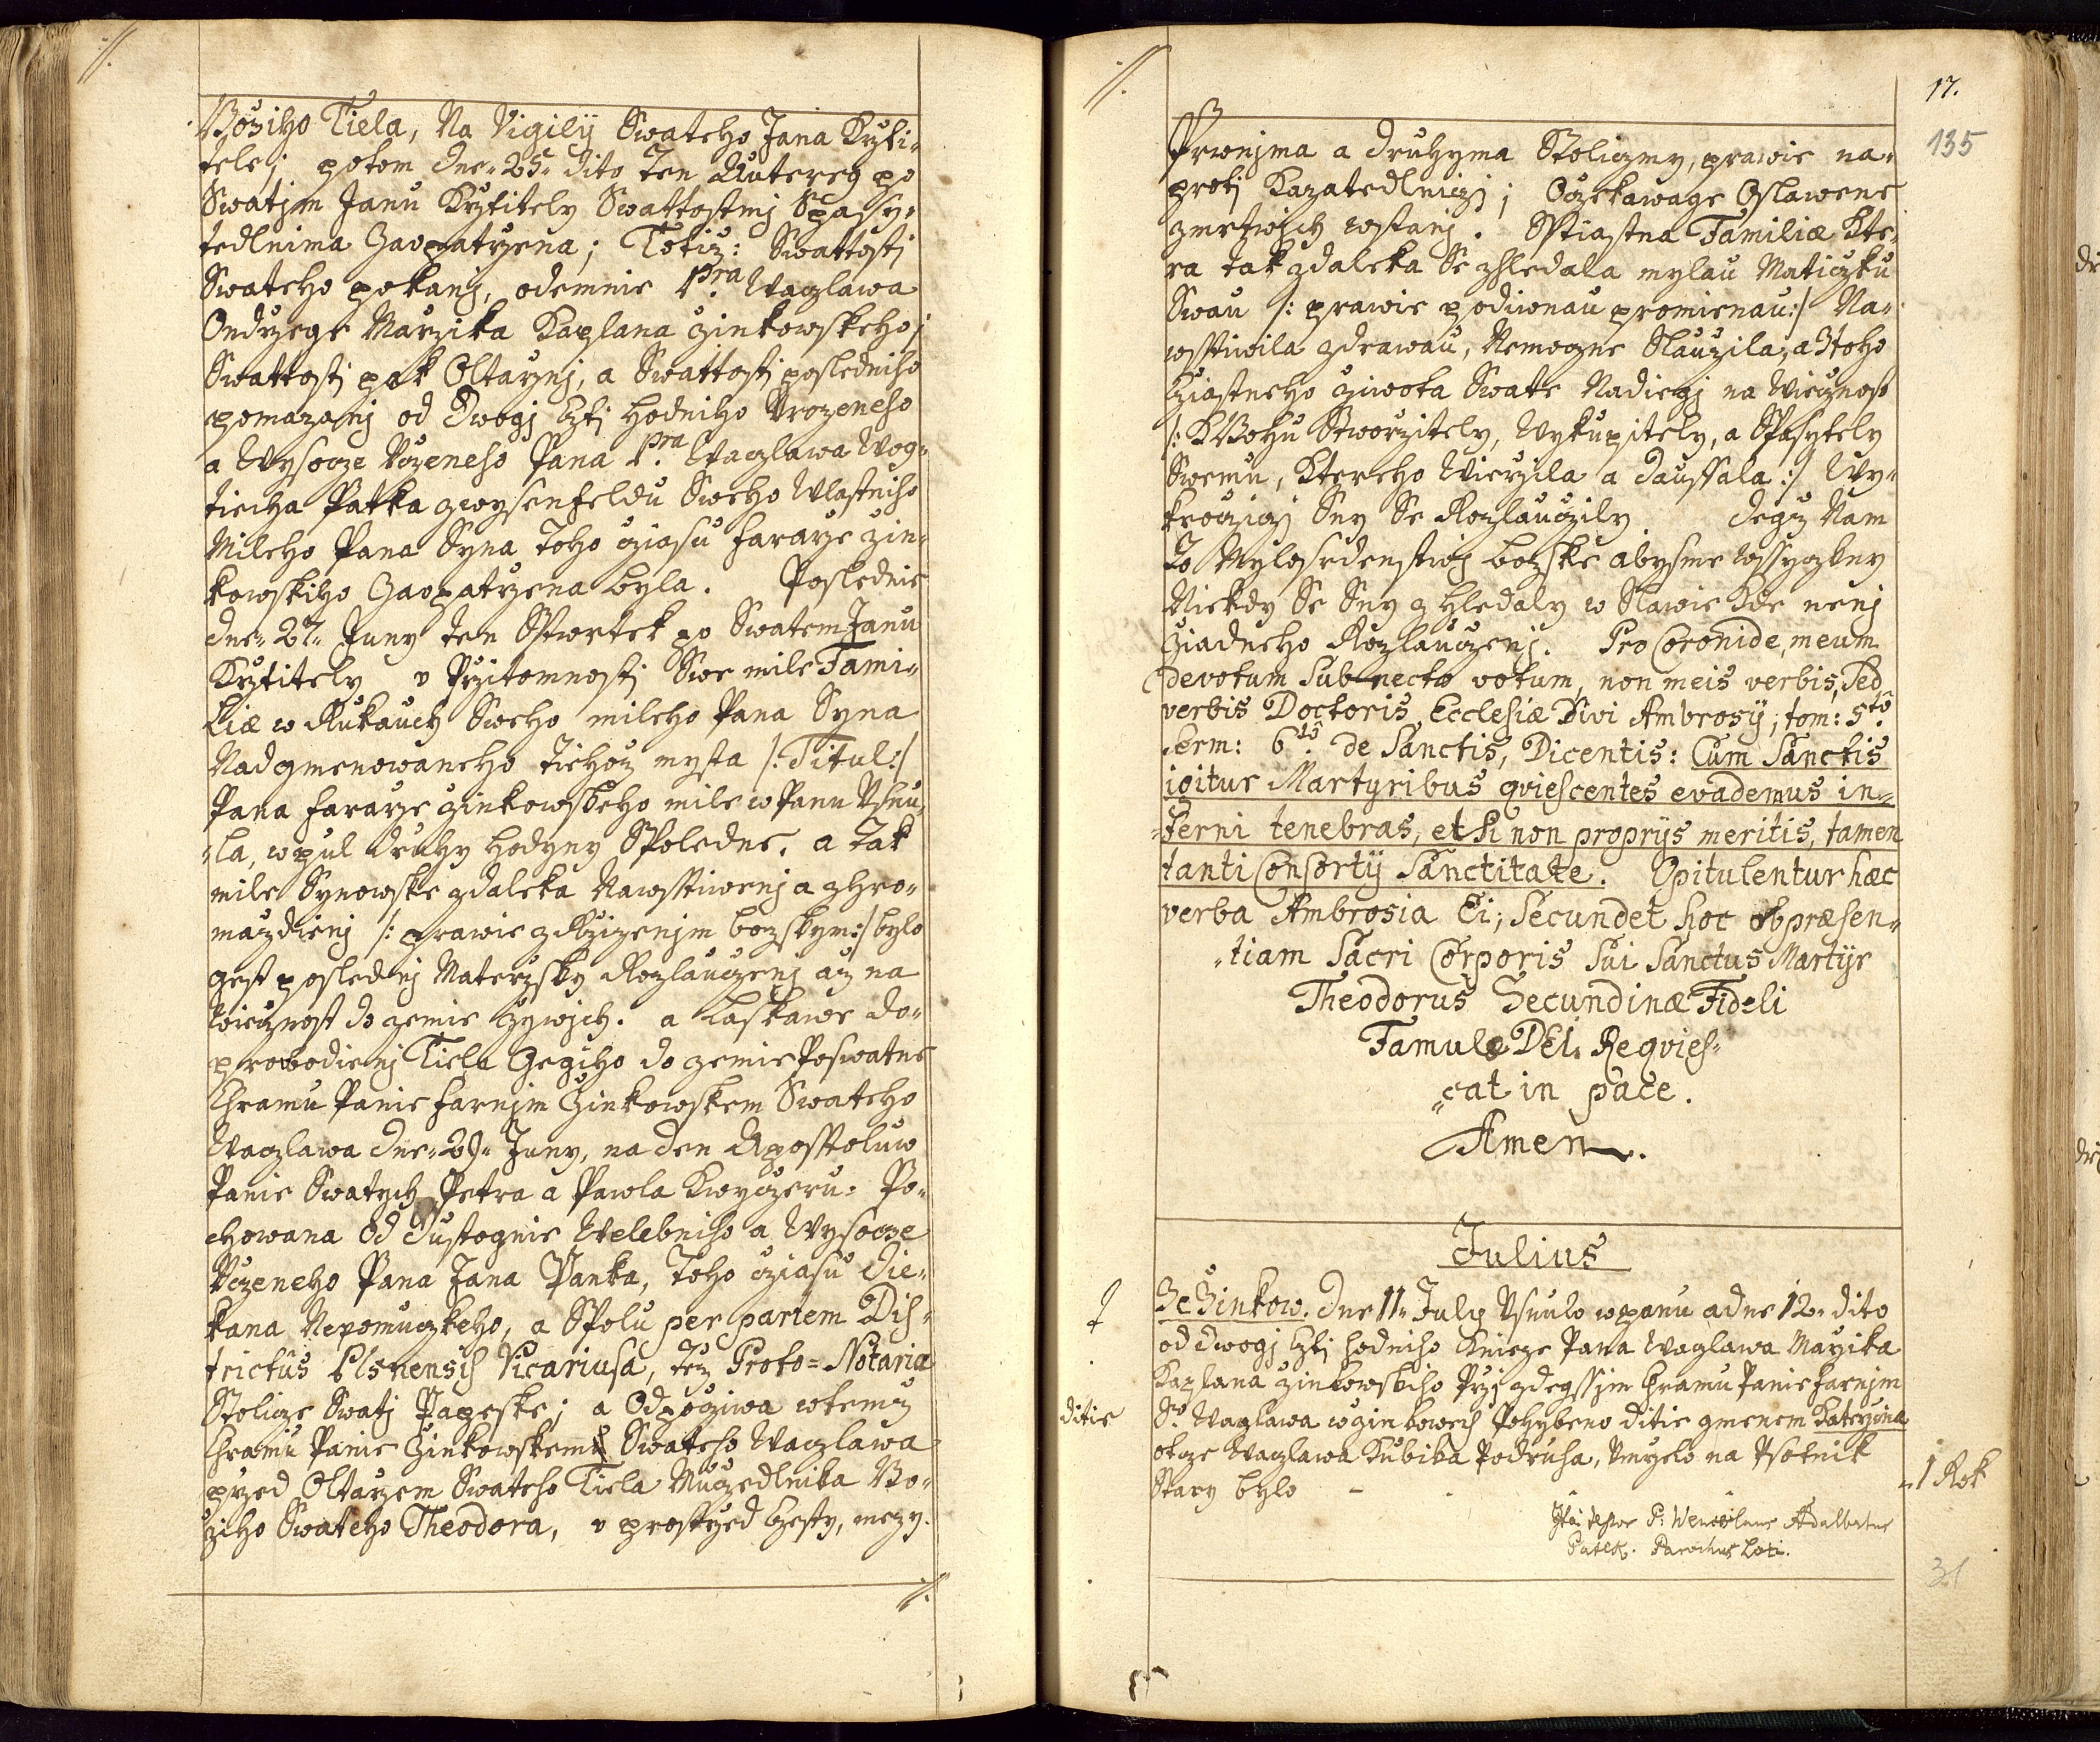 Božiho Tiela, Na Vigilÿ Swateho Jana Krzti-
tele; potom dne 25. dito ten Auterey po
Swatjm Janu Krztitely Swattostmj Spasy-
tedlnima Zaopatrzena; Totiz: Swattostj
Swateho pokanj, odemnie P:ra Waczlawa
Ondrzege Marzika Kaplana Zinkowskeho;
Swattostj pak Oltarznj, a Swattostj posledniho
pomazanj od Dwogj Cztj hodniho Urozeneho
a Wysocze Uczeneho Pana P:ra Waczlawa Wog-
tiecha Patka z wysenfeldu Sweho Wlastniho
Mileho Pana Syna toho cziasu Fararze Zin-
kowskiho Zaopatrzena byla. Poslednie
dne 27. Juny ten Sstwrtek po Swatem Janu
Krztitely v Przitomnostj Swe mile Fami-
liæ w Rukauch Sweho mileho Pana Syna
Nadgmenowaneho tiehoz mysta /: Titul :/
Pana Fararze Zinkowskeho mile w Panu Usnu-
la, w pul druhy hodyny Spoledne. a tak
mile Synowske zdaleka Nawsstiwenj a zhro-
mazdienj /: prawie z Rzizenjm bozskym :/ bylo
gest poslednj Materzsky Rozlauczenj az na
wiecznost do zemie Zywjch. a Laskawe do-
prowodienj Tiela Gegiho do zemie Poswatne
Chramu Panie Farnjm Zinkowskem Swateho
Waczlawa dne 29. Juny, na den Aposstoluw
Panie Swatych Petra a Pawla Kwyczeru. Po-
chowana od Dustognie Welebniho a Wysocze
Uczeneho Pana Jana Panka, toho cziasu Die-
kana Nepomuczkeho, a Spolu per partem Dis-
trictûs Plsnensis Vicariusa, tez Proto=Notaria
Stolicze Swatj Papeske; a Odpocziwa wtemz
Chramu Panie Zinkowskem Swateho Waczlawa
przed Oltarzem Swateho Tiela Muczedlnika Bo-
ziho Swateho Theodora, v prostrzed Czesty, mezy
17.
135
Prwnjma a druhyma Stoliczmy, prawie na-
protj Kazatedlniczj; Oczekawage Oslawene
zmrtwjch wstanj. Sstiastna Familiæ Kte-
ra tak zdaleka Se zhledala mylau Maticzku
Swau /: prawie podiwnau promienau :/ Na-
wsstiwila zdrawau, Nemoczne Slauzila, a Ztoho
cziastneho ziwota Swate Nadiegj na Wiecznost
/: K Bohu Stworzitely, Wykupitely, a Spasytely
Swemu, Ktereho Wierzila a dauffala :/ Wy-
kroczicj Sny Se Rozlauczily. degz Nam
To Mylosrdenstwj bozske abysme wssyczkny
Niekdy Se Sny z Hledaly w Slawie kde nenj
Ziadneho Rozlauczenj. Pro Coronide, meum
devotum Subnecto votum, non meis verbis, Sed
verbis Doctoris Ecclesiæ Divi Ambrosÿ; tom: 5to.
Serm: 6to. de Sanctis, Dicentis: Cum Sanctis
igitur Martyribus qviescentes evademus in-
ferni tenebras, et si non proprÿs meritis, tamen
tanti Consortÿ Sanctitate. Opitulentur hæc
verba Ambrosia Ei; Secundet hoc ob præsen-
tiam Sacri Corporis Sui Sanctus Martÿr
Theodorus Secundinæ Fideli
Famulæ DEI. Reqvies-
cat in pace.
Amen.
Julius
Ze Zinkow. dne 11. July Usnulo w panu a dne 12. dito
od dwogj Cztj hodniho Knieze Pana Waczlawa Marzika
Kaplana Zinkowskiho Przj zdegssjm Chramu Panie Farnjm
ditie
S. Waczlawa w Zinkowech Pohrzbeno ditie gmenem Katerzina
otcze Waczlawa Kubika Podruha, Umrzelo na Psotnik
Stary bylo - 1 Rok
P: Wenceslaus Adalbertus
Patek. Parochus Loci.
31